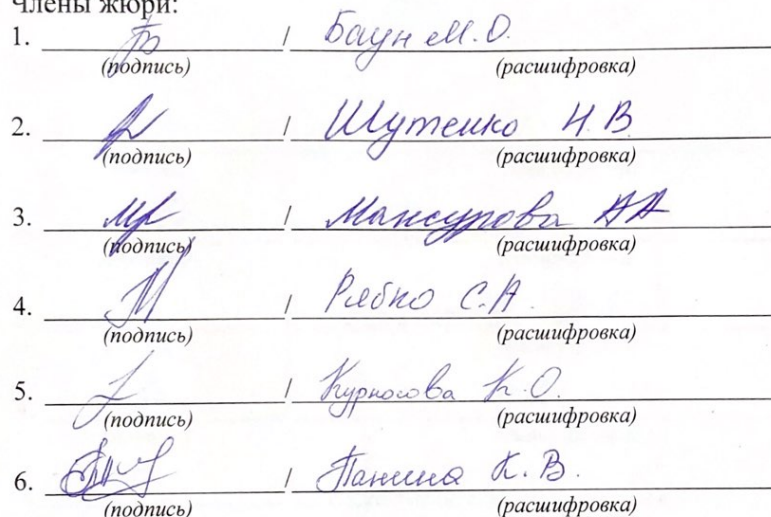 Члены жюри:
1. / Баун М.О.
(подпись) (расшифровка)
2. / Шутенко Н.В
(подпись) (расшифровка)
3. / Мансурова АА
(подпись) (расшифровка)
4. / Рябко С.А.
(подпись) (расшифровка)
5. / Курносова К.О.
(подпись) (расшифровка)
6. / Панина К.В.
(подпись) (расшифровка)